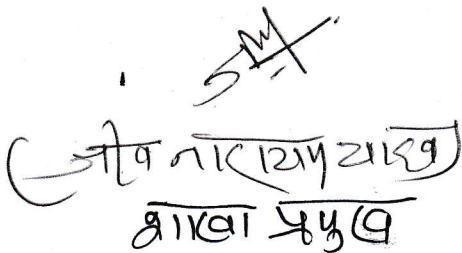 (जीव नारायण यादव)
शाखा प्रमुख